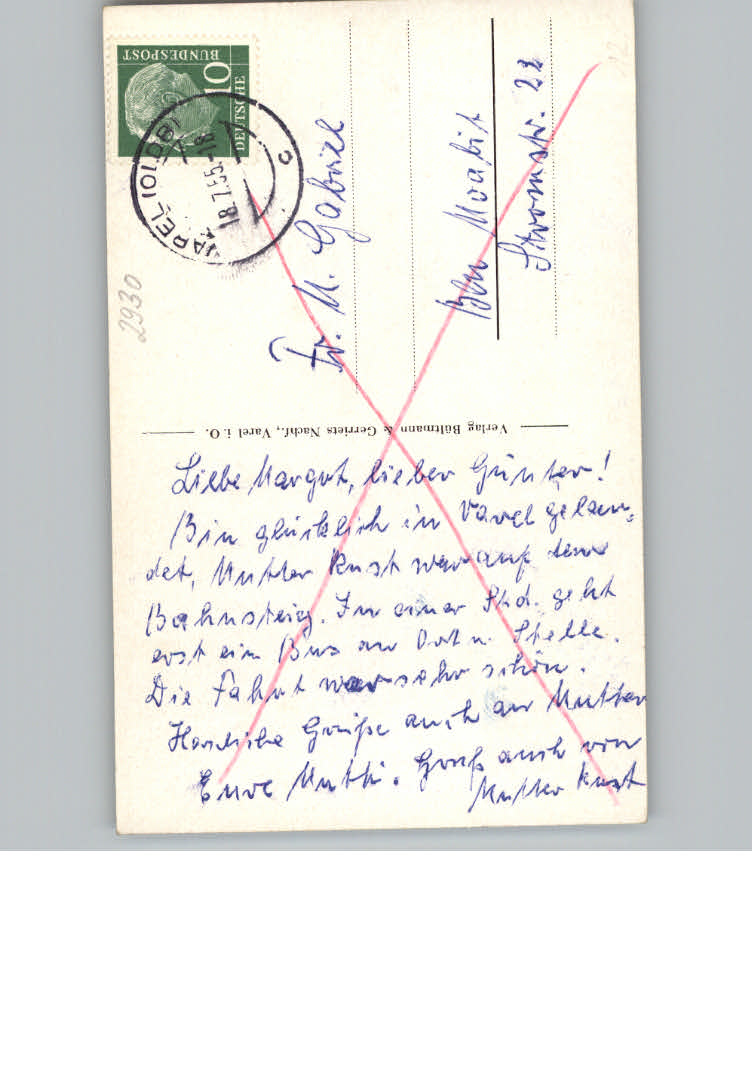 DEUTSCHE
BUNDESPOST
10
VAREL (OLDB)
18.7.55.-18
c
2930
Fr. M. Gabriel
Bln Moabit
Stromstr. 22
Verlag Bültmann & Gerriets Nachf., Varel i. O.
Liebe Margot, lieber Günter!
Bin glücklich in Varel gelan-
det, Mutter Kust war auf dem
Bahnsteig. In einer Std. geht
erst ein Bus an Ort u. Stelle.
Die Fahrt war sehr schön.
Herzliche Grüße auch an Mutter
Eure Mutti. Gruß auch von
Mutter Kust